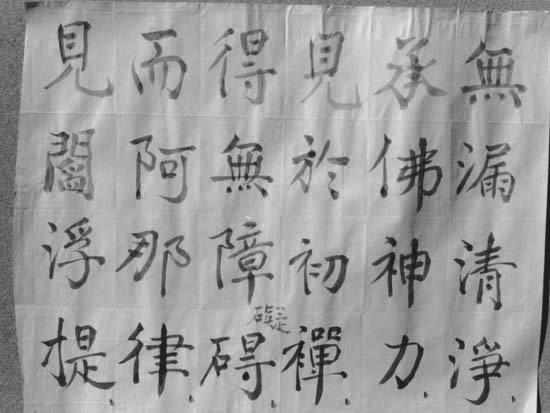 無漏清淨
承佛神力
見於初禪
得無障碍
礙
而阿那律
見閻浮提